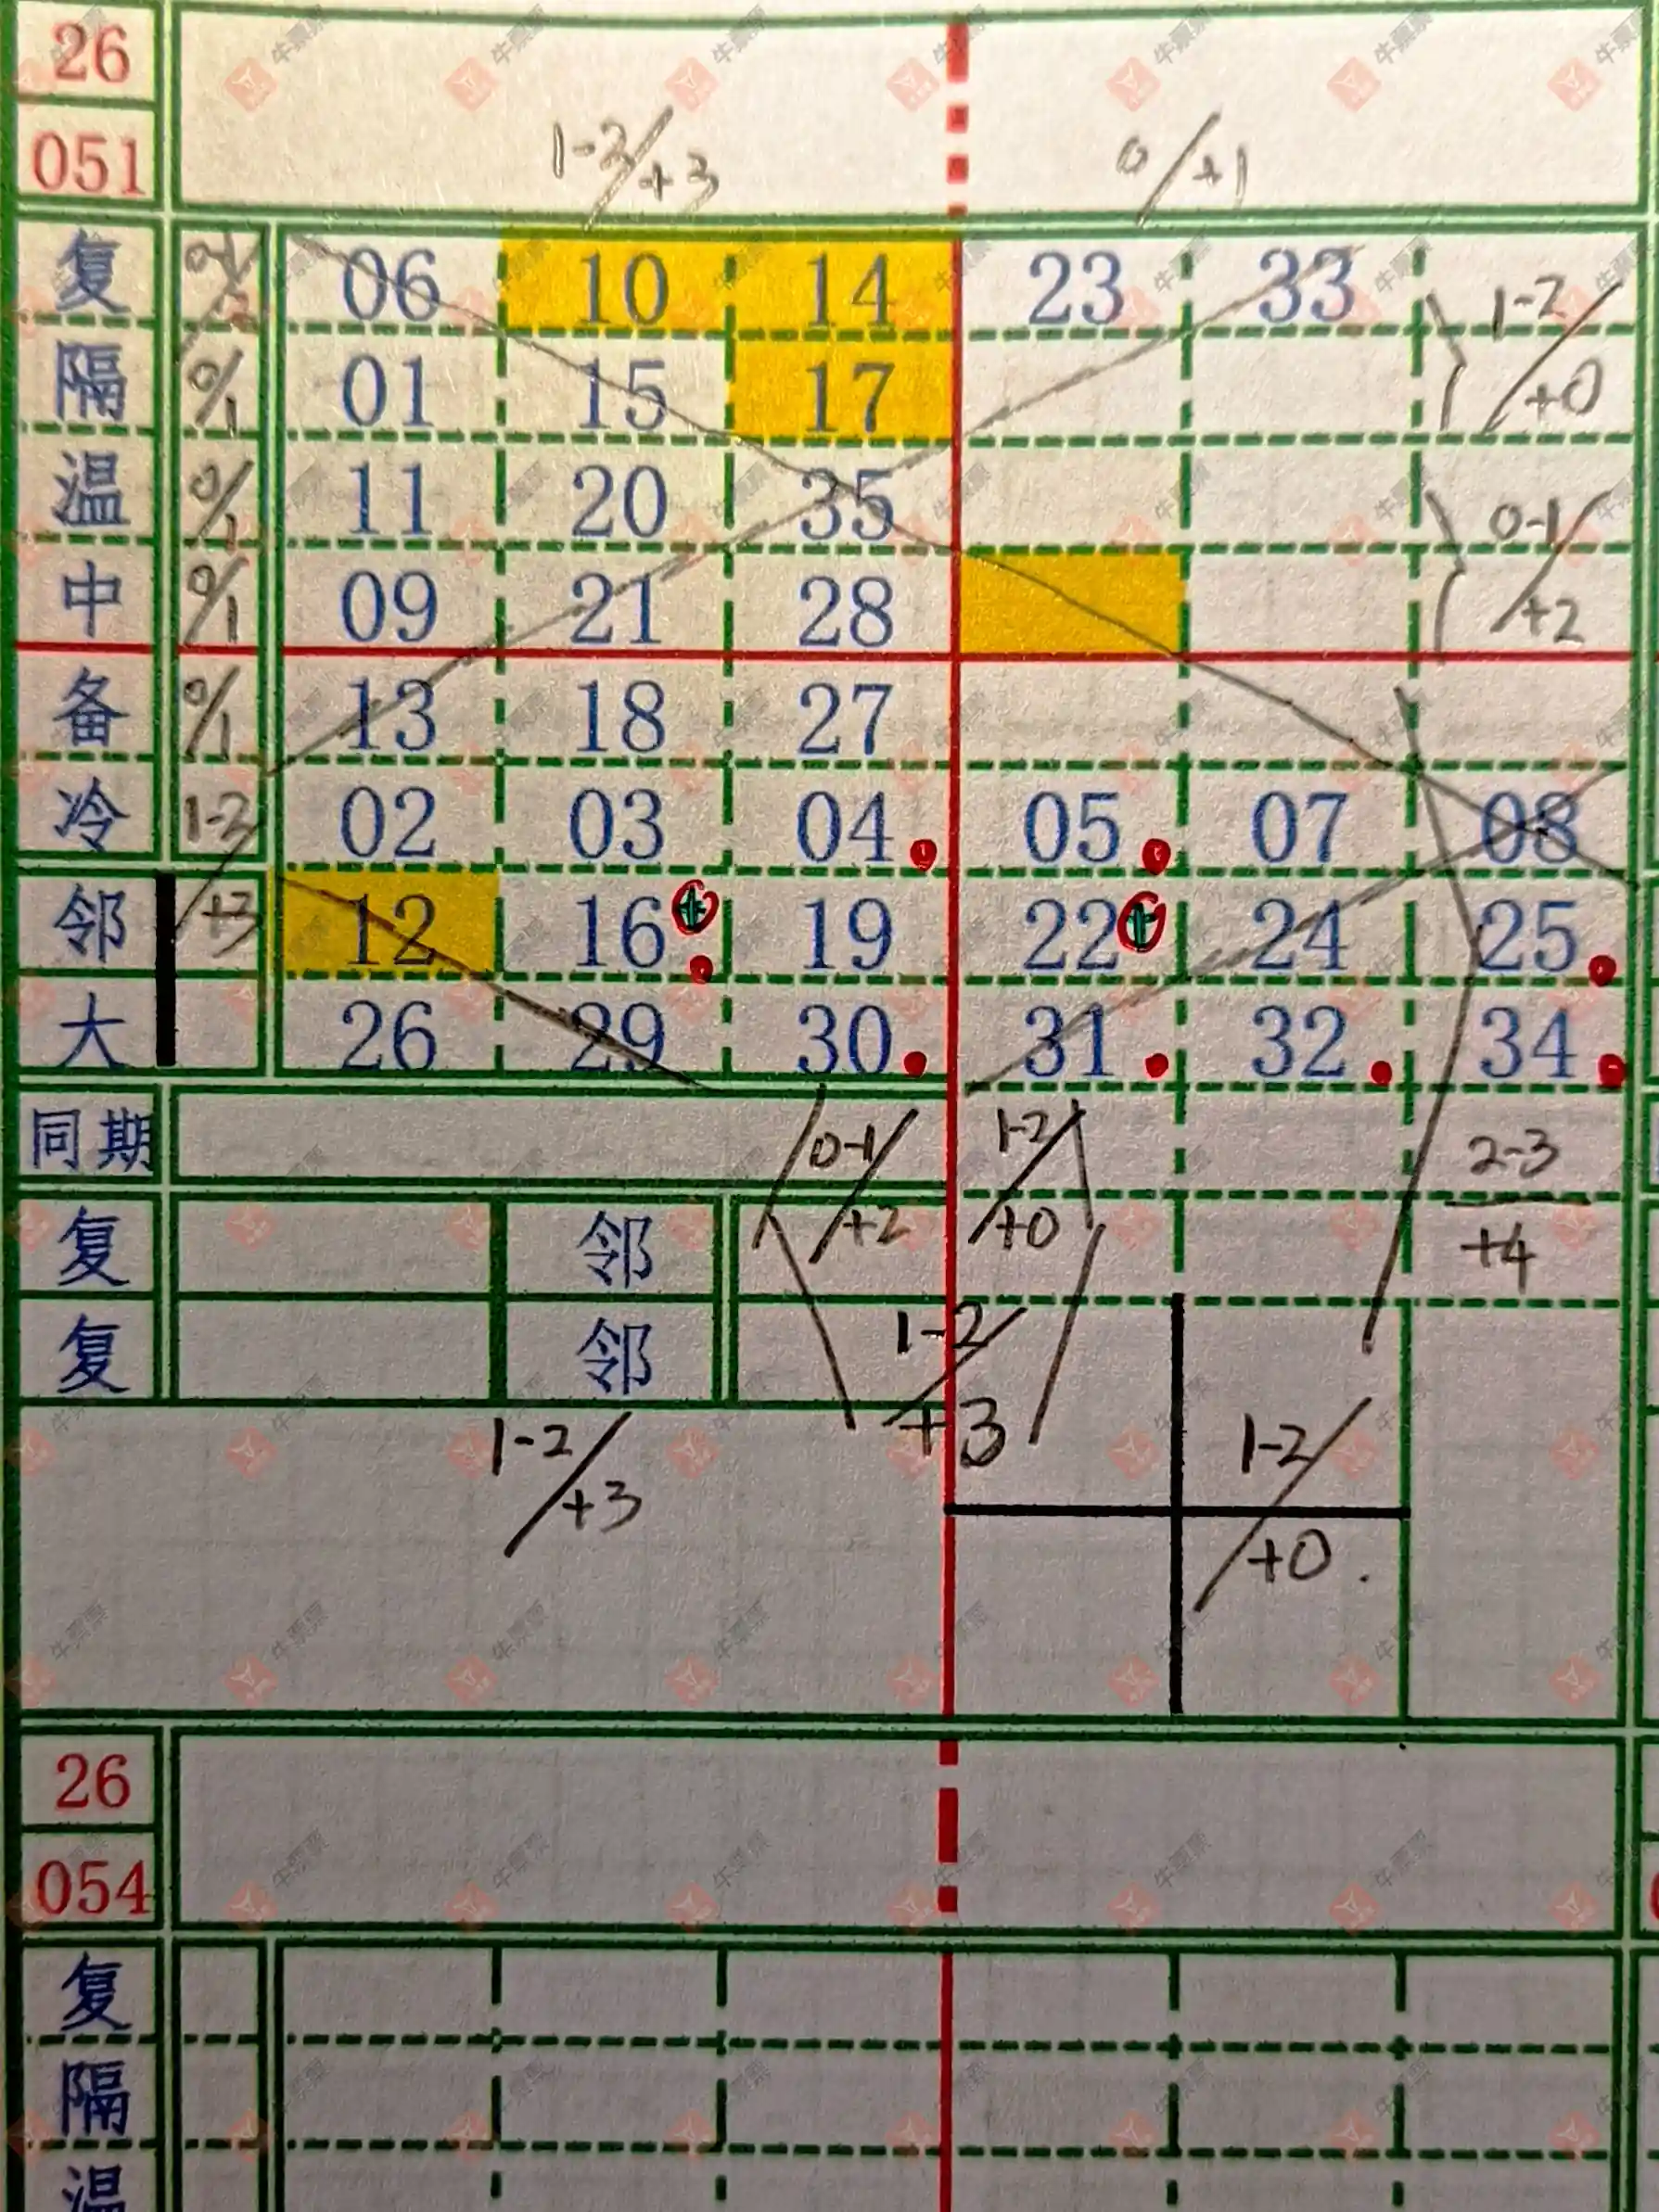 26
051
1-3/+3 0/+1
复 0-1/2 06 10 14 23 33 1-2/+0
隔 0/1 01 15 17
温 0/1 11 20 35 0-1/+2
中 0/1 09 21 28
备 0/1 13 18 27
冷 1-3/+3 02 03 04 05 07 08
邻 12 16 19 22 24 25
大 26 29 30 31 32 34
同期 0-1/+2 1-2/+0 2-3/+4
复 邻
复 邻 1-2/+3
1-2/+3 1-2/+0
26
054
复
隔
温
牛票票